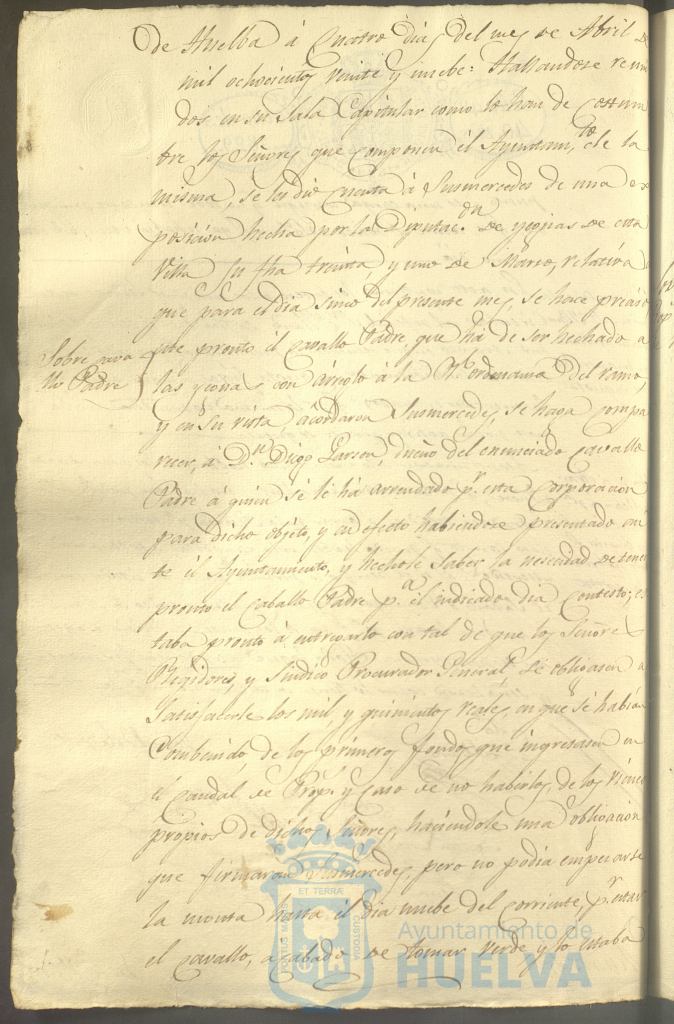 de Huelba á Quatro dias del mes de Abril de
mil ochocientos veinte y nuebe: Hallandose reuni
dos en su Sala Capitular como lo han de costum
bre los Señores que componen el Ayuntam.to de la
misma, se les dio cuenta á Susmercedes de una ex
posicion hecha por la Diputac.on de yeguas de esta
Villa su fha treinta, y uno de Marzo, relativa á
que para el dia sinco del presente mes, se hace preciso
Sobre cava
llo Padre
este pronto el cavallo Padre, que há de ser hechado a
las yeguas con arreglo á la R.l ordenanza del ramo,
y en su vista, acordaron Susmercedes, se haga compa
recer, á D.n Diego Garson, dueño del enunciado Cavallo
Padre á quien se le há arrendado p.r esta Corporacion
para dicho objeto, y en efecto habiendose presentado an
te el Ayuntamiento, y hechole saber la necesidad de tener
pronto el caballo Padre p.a el indicado dia contesto; es
taba pronto á entregarlo con tal de que los Señores
Regidores, y Sindico Procurador General, se obligasen a
Satisfacerle los mil y quinientos reales en que se habian
Combenido, de los primeros fondos que ingresasen en
el Caudal de Prop.s y caso de no haberlos, de los vienes
propios de dichos Señores, haciendole una obligacion
que firmaron Susmercedes, pero no podia empesarse
la monta hasta el dia nuebe del corriente, p.r estar
el cavallo, acabado de tomar verde y lo estaba
ET TERRÆ
PORTUS MARIS
CUSTODIA
Ayuntamiento de
HUELVA